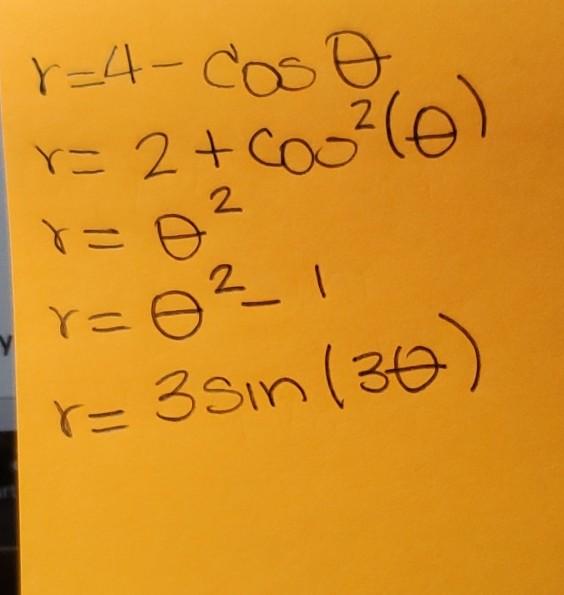 r=4- cos θ
r= 2 + cos²(θ)
r= θ²
r= θ²- 1
r= 3sin(3θ)